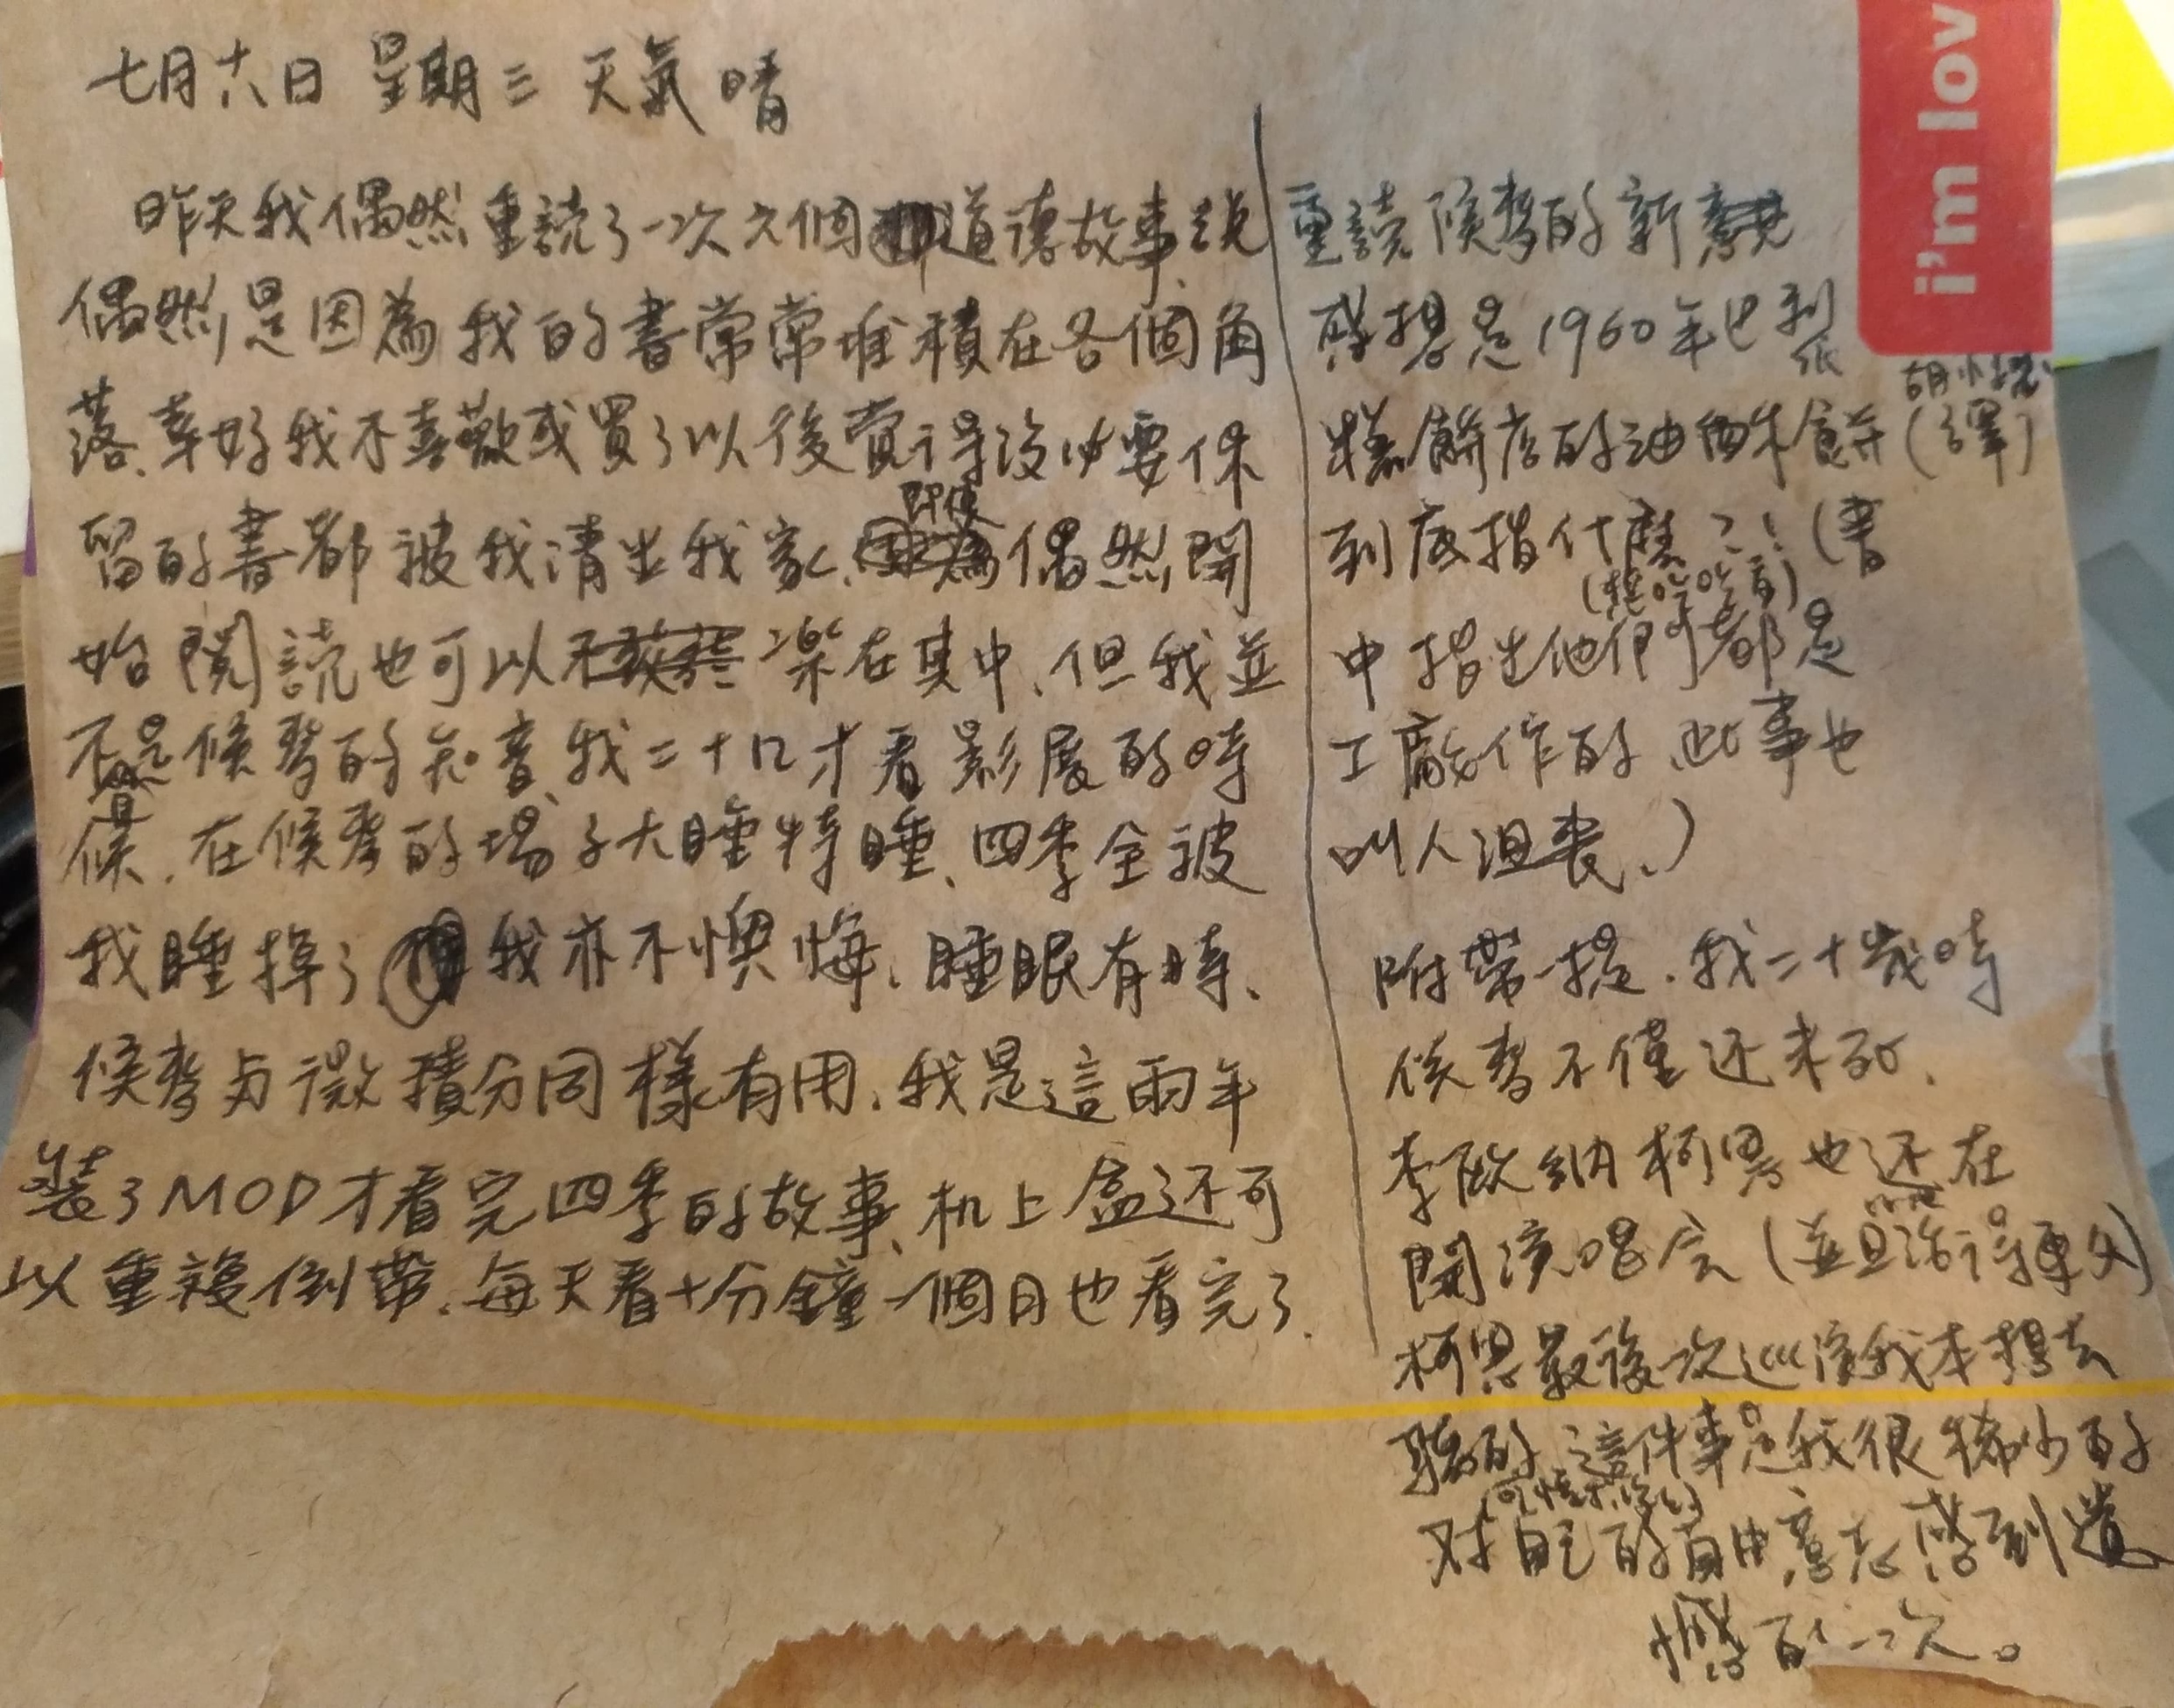 七月六日 星期三 天氣晴
昨天我偶然重読了一次六個道德故事、説
偶然是因為我的書常常堆積在各個角
落、幸好我不喜歡或買了以後覺得沒必要保
留的書都被我清出我家、即使偶然開
始閱読也可以樂在其中、但我並
不是候麥的知音、我二十几才看影展的時
候、在候麥的場子大睡特睡、四季全被
我睡掉了、我亦不懊悔、睡眠有時、
候麥与微積分同樣有用、我是這兩年
裝了MOD才看完四季的故事、机上盒还可
以重複倒帶、每天看十分鐘一個月也看完了.
重読候麥的新
感想是1960年巴利
糕餅店的油酥餅(胡小譯)
到底指什麼?!(書
(想吃吃看)
中指出他們都是
工廠作的、此事也
叫人沮喪、)
附帶一提、我二十歲時
候麥不僅还未死、
李歐納柯恩也还在
開演唱会(並且活得更久)
柯恩最後一次巡演我本想去
聽的、這件事是我很稀少的
對自己的自由意志感到遺
憾的一次。
i'm lov